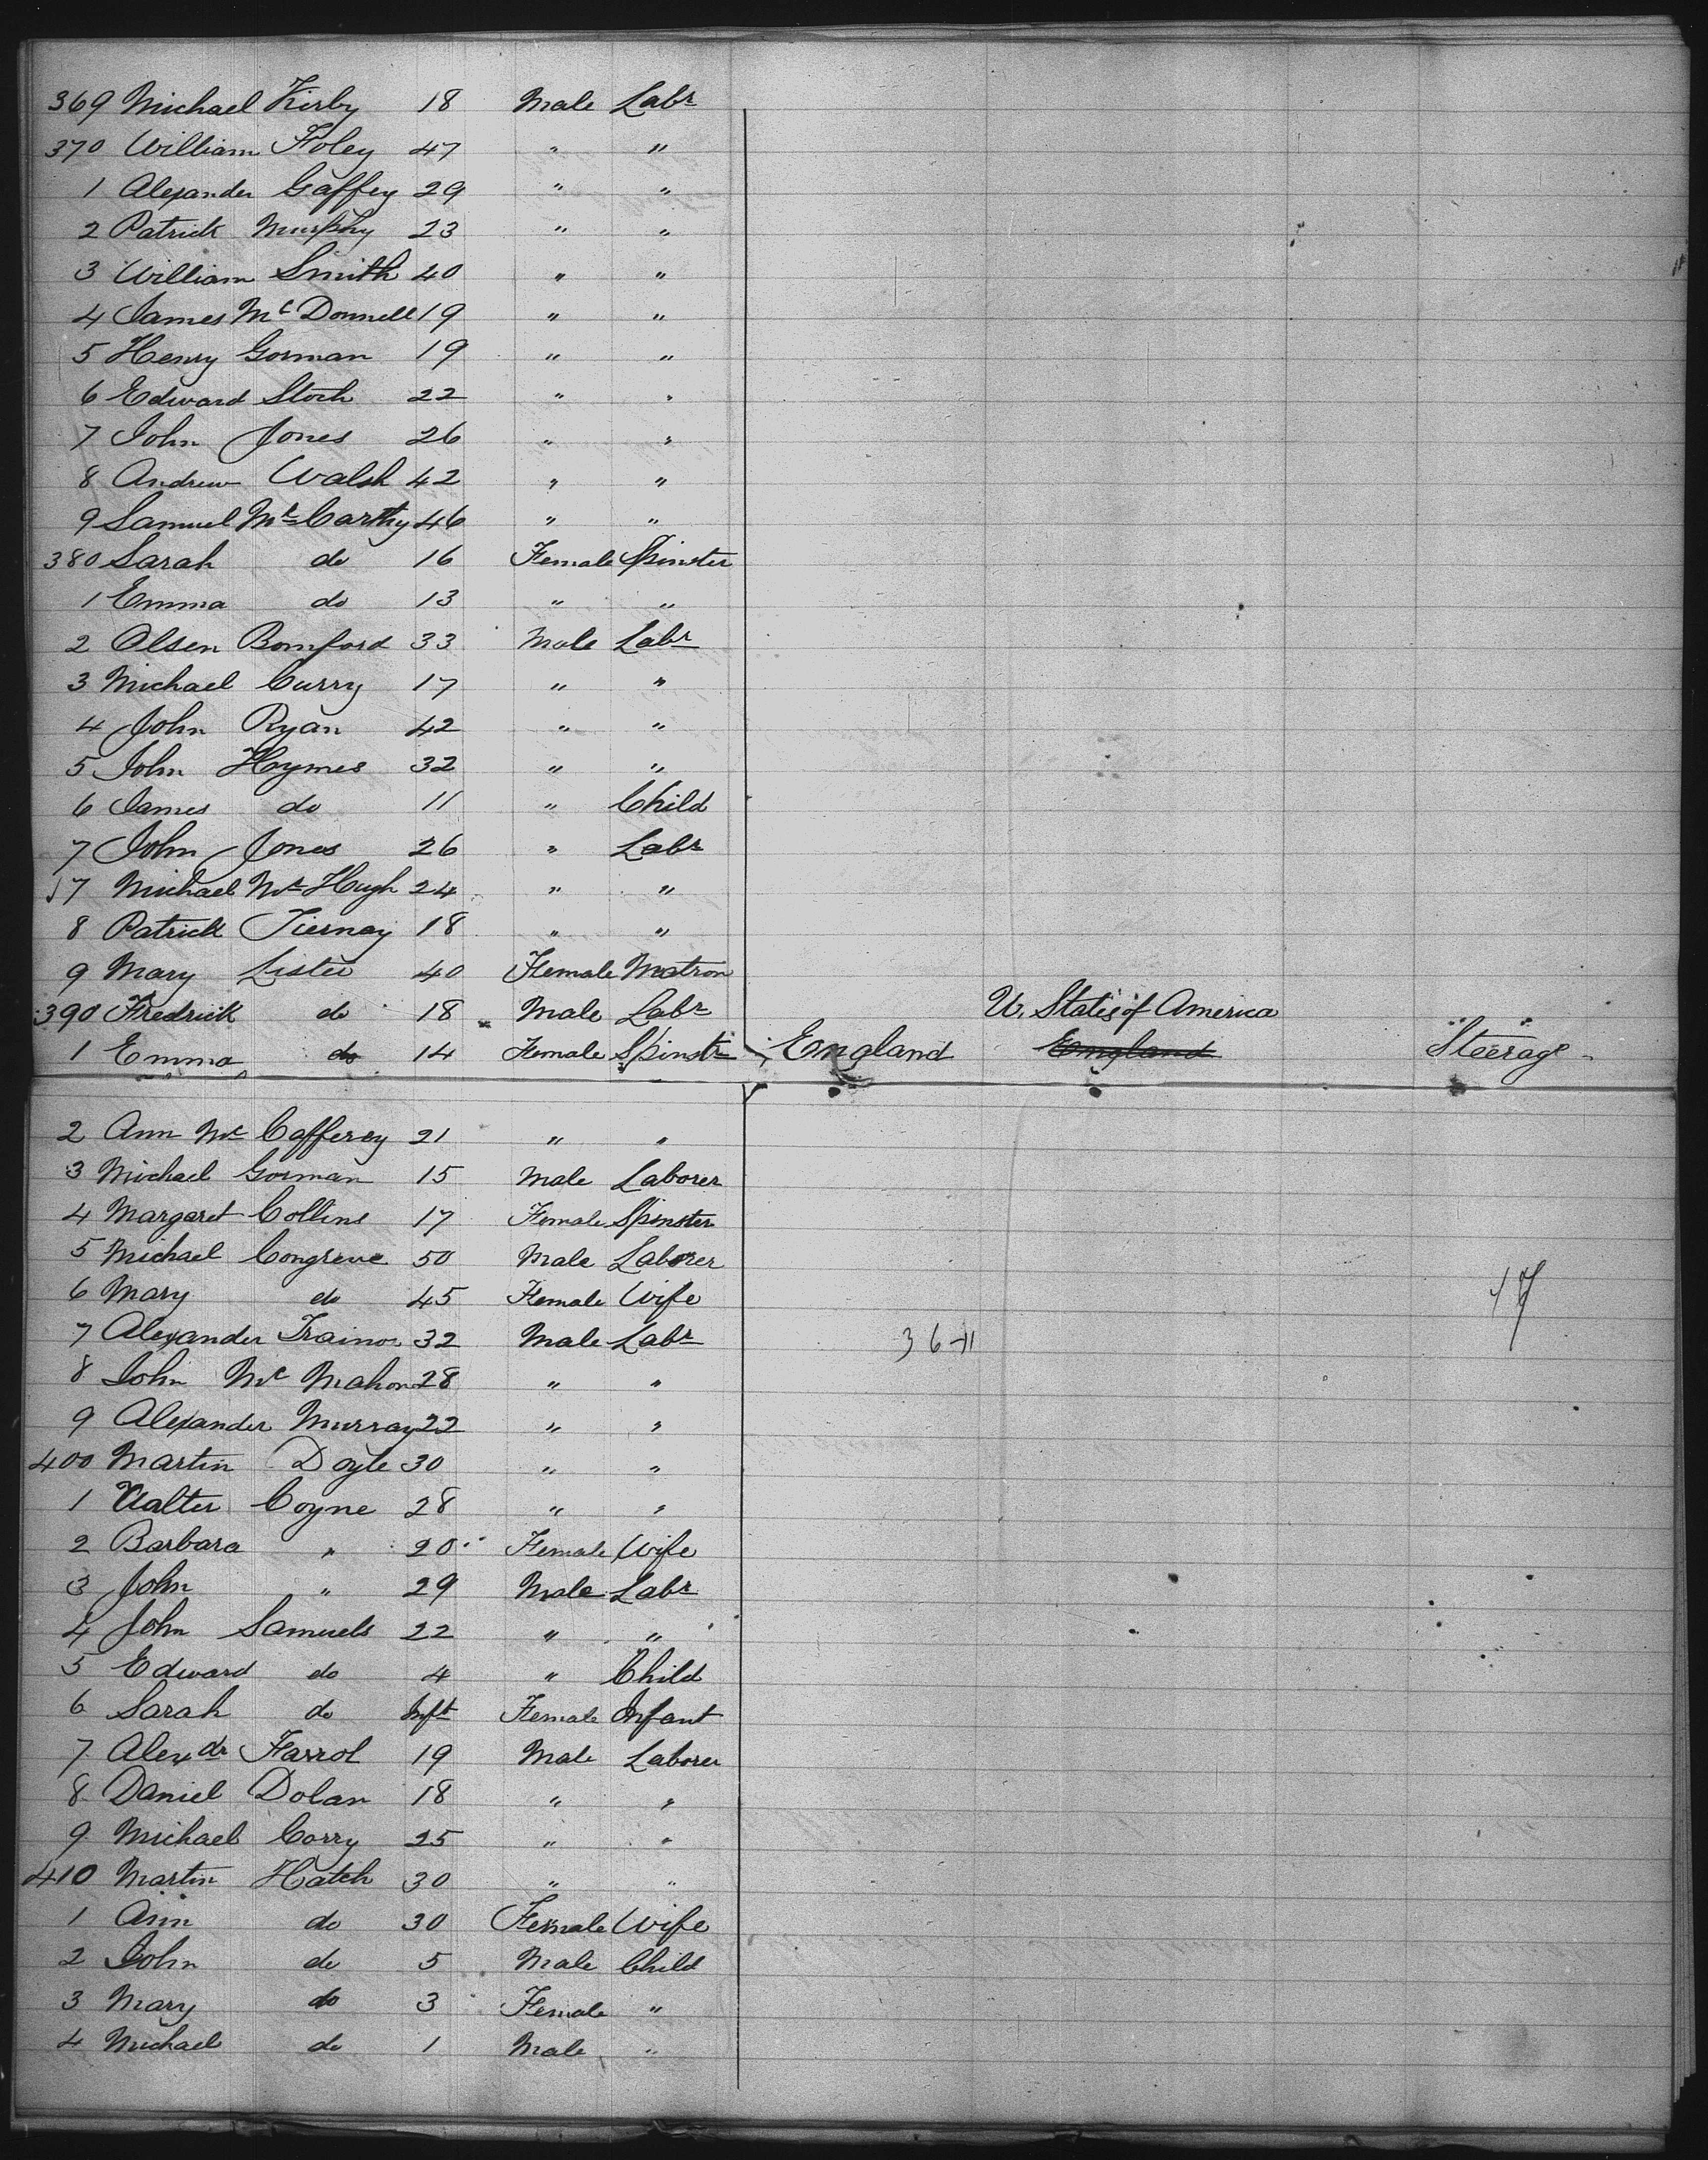 369 Michael Kirby 18 Male Labr
370 William Foley 47 " "
1 Alexander Gaffey 29 " "
2 Patrick Murphy 23 " "
3 William Smith 40 " "
4 James Mc Donnell 19 " "
5 Henry Gorman 19 " "
6 Edward Stock 22 " "
7 John Jones 26 " "
8 Andrew Walsh 42 " "
9 Samuel Mc Carthy 46 " "
380 Sarah do 16 Female Spinster
1 Emma do 13 " "
2 Olsen Bomford 33 Male Labr
3 Michael Curry 17 " "
4 John Ryan 42 " "
5 John Haymes 32 " "
6 James do 11 " Child
7 John Jones 26 " Labr
7 Michael Mc Hugh 24 " "
8 Patrick Tiernay 18 " "
9 Mary Lister 40 Female Matron
390 Fredrick do 18 Male Labr U. States of America
1 Emma do 14 Female Spinstr England England Steerage
2 Ann Mc Cafferey 21 " "
3 Michael Gorman 15 Male Laborer
4 Margaret Collins 17 Female Spinster
5 Michael Congreve 50 Male Laborer
6 Mary do 45 Female Wife
7 Alexander Trainor 32 Male Labr 36-11
8 John Mc Mahon 28 " "
9 Alexander Murray 22 " "
400 Martin Doyle 30 " "
1 Walter Coyne 28 " "
2 Barbara " 20 Female Wife
3 John " 29 Male Labr
4 John Samuels 22 " "
5 Edward do 4 " Child
6 Sarah do Inft Female Infant
7 Alexdr Farrol 19 Male Laborer
8 Daniel Dolan 18 " "
9 Michael Corry 25 " "
410 Martin Hatch 30 " "
1 Ann do 30 Female Wife
2 John do 5 Male Child
3 Mary do 3 Female "
4 Michael do 1 Male "